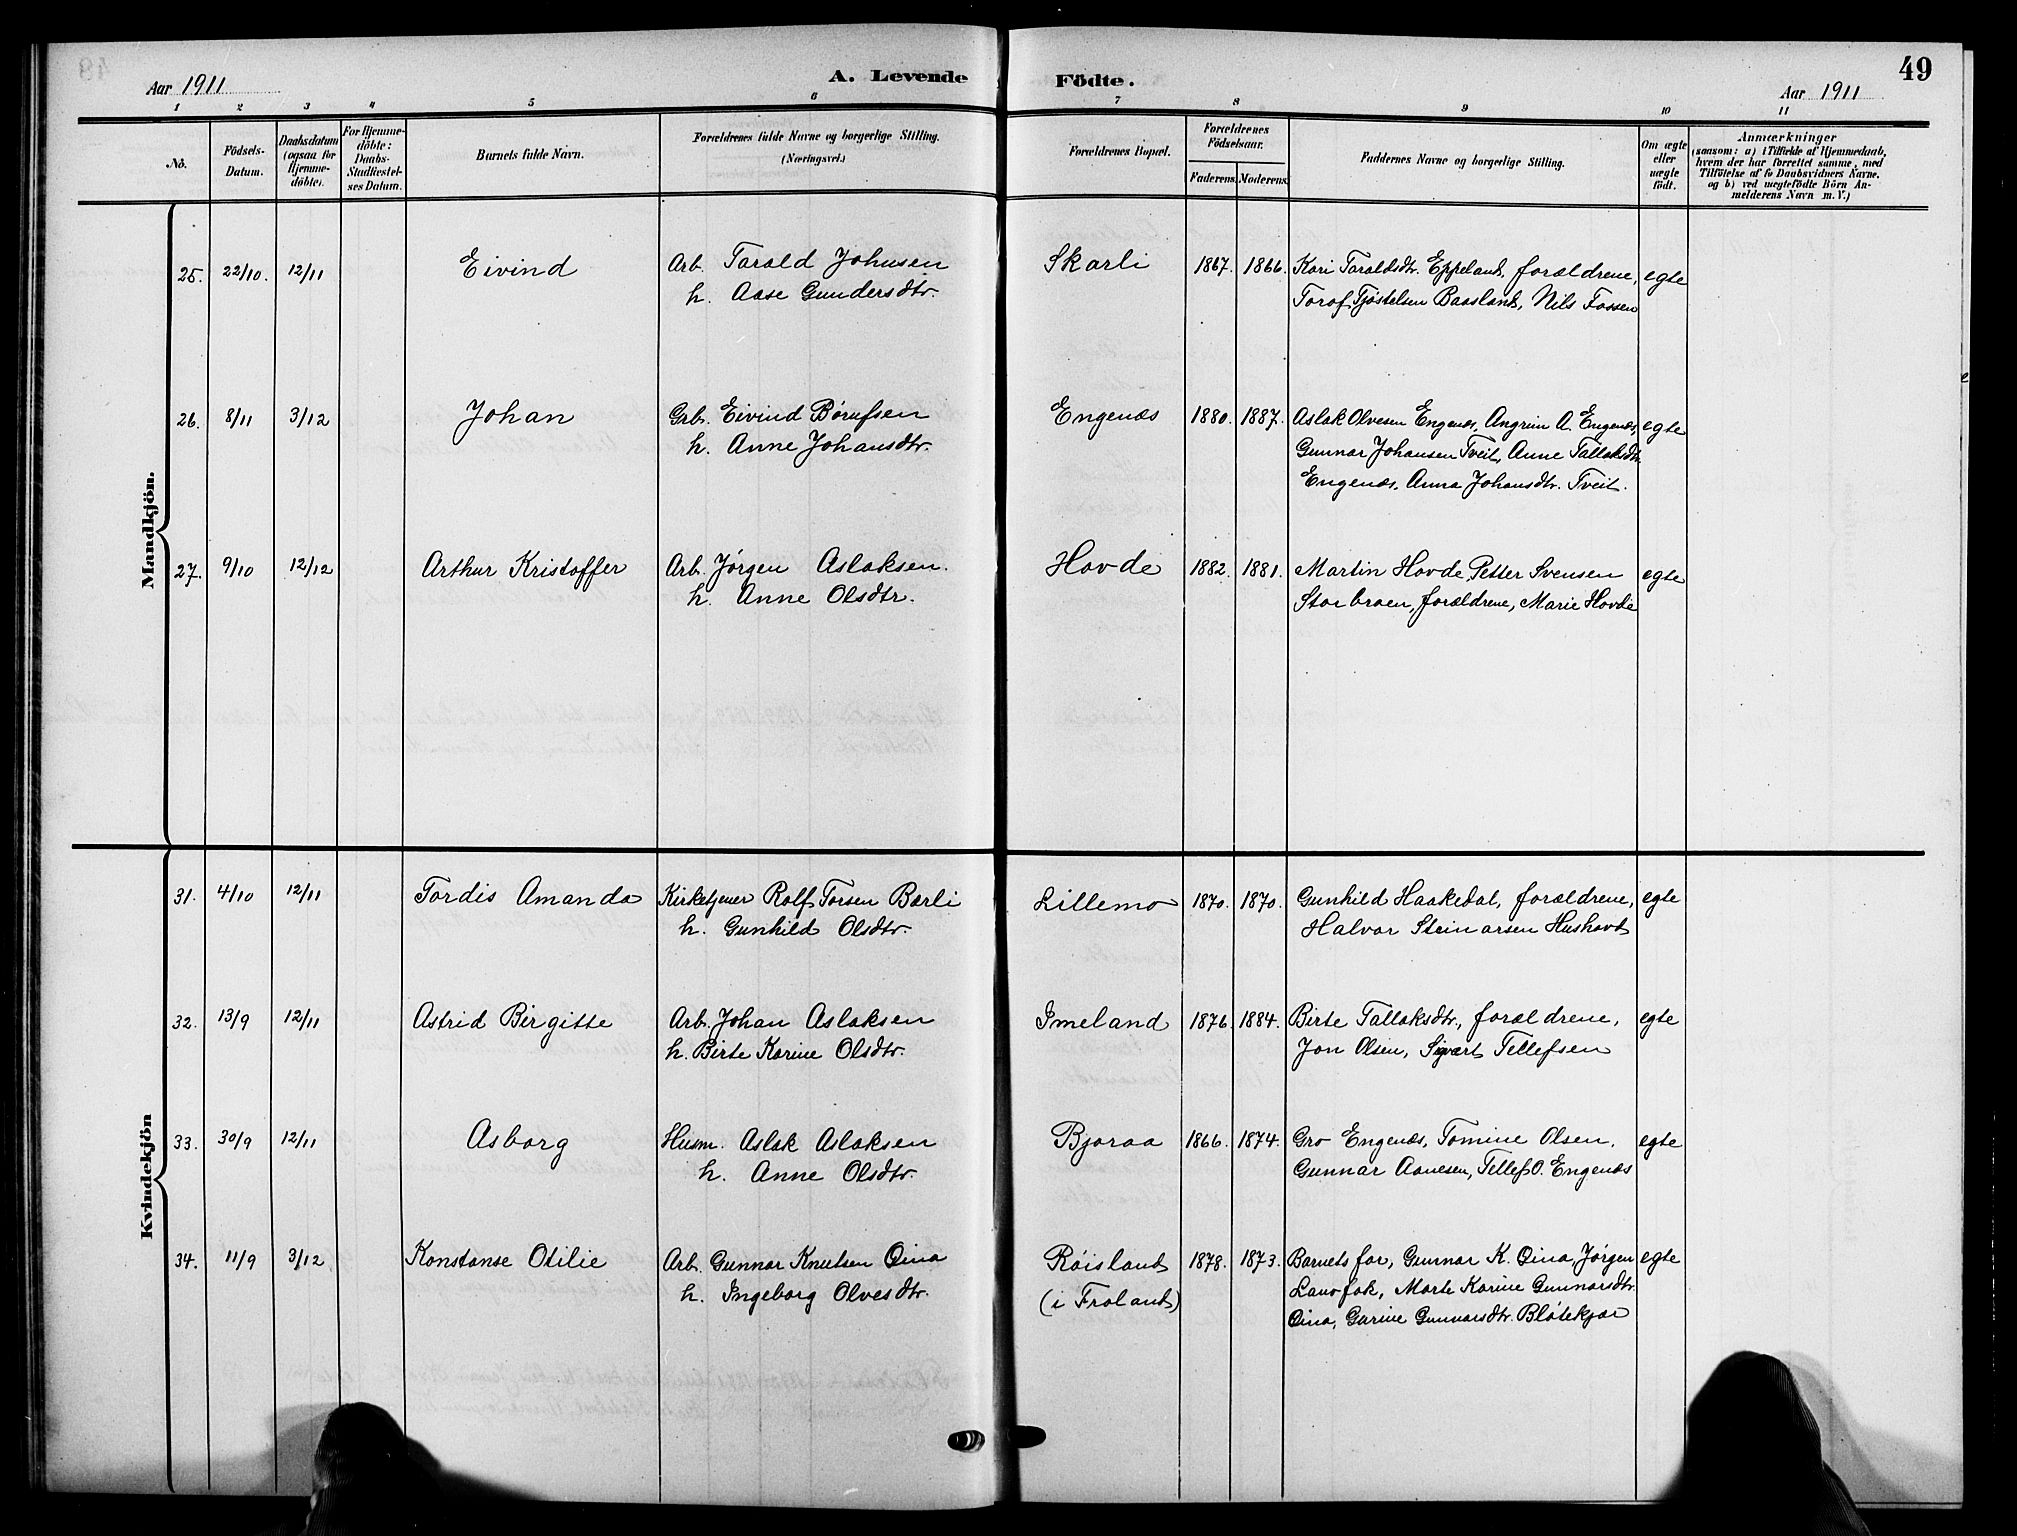 49
Aar 1911
A. Levende Födte.
Aar 1911
1 2 3 4 5 6 7 8 9 10 11
No.
Födsels-Datum.
Daabsdatum (ogsaa for Hjemme-döbte).
For Hjemme-döbte: Daabs-Stadfæstel-ses Datum.
Barnets fulde Navn.
Forældrenes fulde Navne og borgerlige Stilling. (Næringsvei.)
Forældrenes Bopæl.
Forældrenes Födselsaar.
Faderens. Moderens.
Faddernes Navne og borgerlige Stilling.
Om ægte eller uægte født.
Anmærkninger
(saasom: a) i Tilfælde af Hjemmedaab, hvem der har forrettet samme, med Tilföielse af to Daabsvidners Navne, og b) ved uægtefödte Börn Anmelderens Navn m. V.)
Mandkjön.
25. 22/10. 12/11 Eivind Arb. Tarald Johnsen Skarli 1867. 1866. Kari Taraldsdtr. Eppeland, forældrene, egte
h. Aase Gundersdtr. Torof Tjøstelsen Baasland, Nils Fossen
26. 8/11 3/12 Johan Grb. Eivind Børufsen Engenæs 1880. 1887. Aslak Olvesen Engenæs, Angrim A. Engenæs, egte
h. Anne Johansdtr. Gunnar Johansen Tveit, Anne Tallaksdtr.
Engenæs, Anna Johansdtr. Tveit.
27. 9/10 12/12 Arthur Kristoffer Arb. Jørgen Aslaksen. Hovde 1882. 1881. Martin Hovde, Petter Svensen egte
h. Anne Olsdtr. Storbroen, forældrene, Marie Hovde
Kvindekjön
31. 4/10 12/11 Tordis Amanda Kirketjener Rolf Torsen Bærli Lillemo 1870. 1870. Gunhild Haakedal, forældrene, egte
h. Gunhild Olsdtr. Halvor Steinarsen Hushovd
32. 13/9 12/11 Astrid Birgitte Arb. Johan Aslaksen Imeland 1876. 1884. Birte Tallaksdtr., forældrene, egte
h. Birte Karine Olsdtr. Jon Olsen, Sigvart Tellefsen
33. 30/9 12/11 Asborg Husm. Aslak Aslaksen Bjoraa 1866. 1874. Gro Engenæs, Tomine Olsen, egte
h. Anne Olsdtr. Gunnar Aanesen, Tellef O. Engenæs
34. 11/9 3/12 Konstanse Otilie Arb. Gunnar Knutsen Oina Røisland 1878. 1873. Barnets far, Gunnar K. Oina, Jørgen egte
h. Ingeborg Olvesdtr. (i Froland) Lauvfak, Marte Karine Gunnarsdtr.
Oina, Garine Gunnarsdtr. Bløtekjær